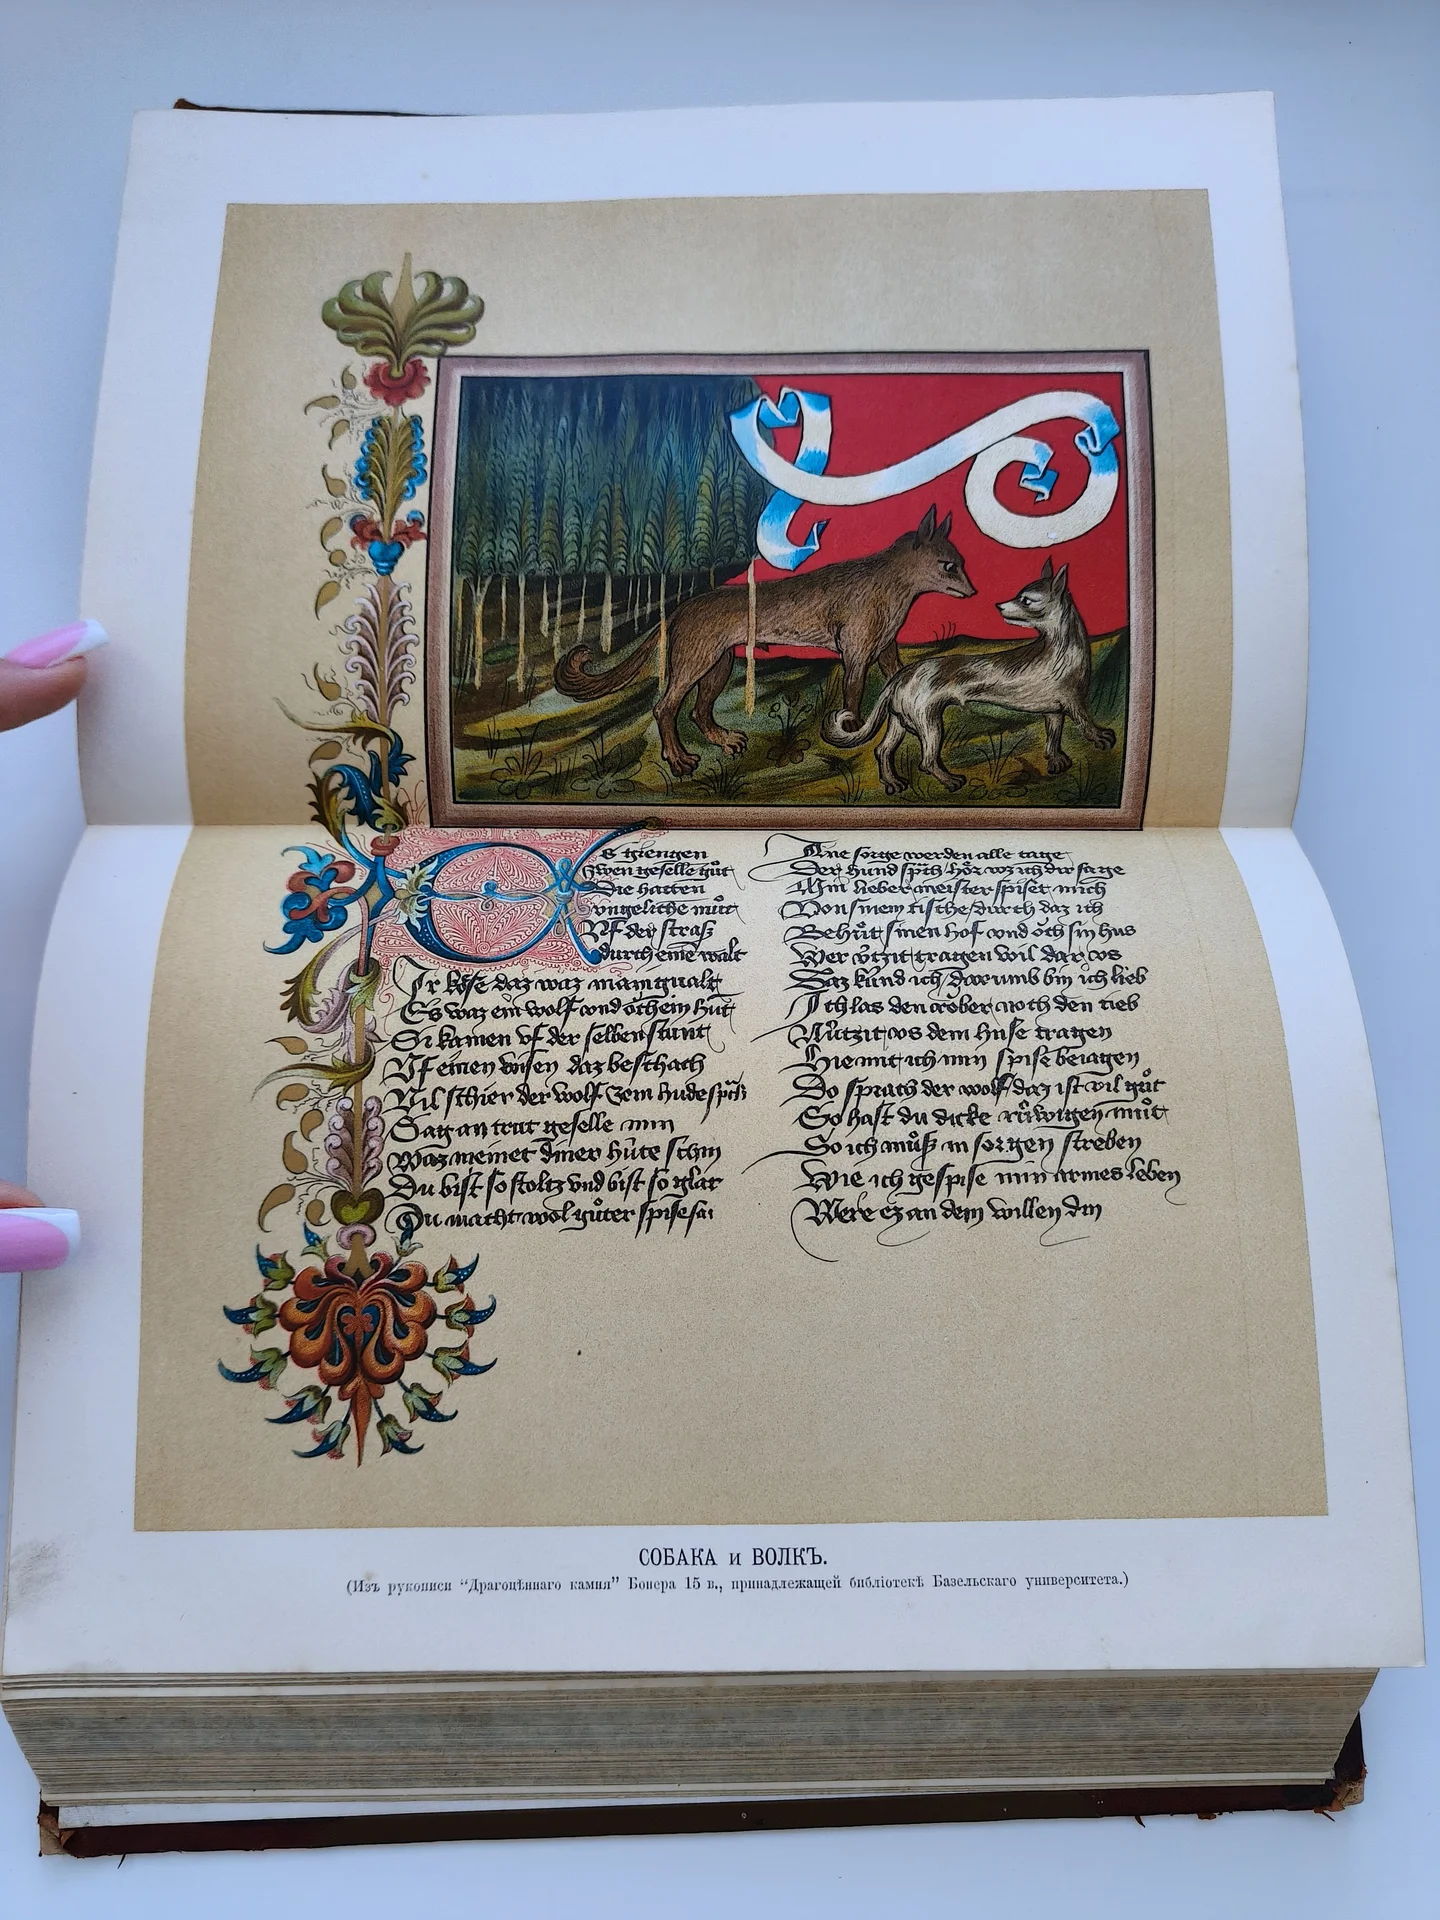 Es giengen
zwen geselle guͦt
Die hatten
vngeliche muͦt
Vf der straß
durch eine walt
Ir kose daz waz manigualt
Es waz ein wolf vnd oͮch ein hūt
Si kamen vf der selben stunt
Vf einen wisen daz beschach
Vil schier der wolf zem hude
Sag an trut geselle min
Waz meinet diner hüte schin
Du bist so stoltz vnd bist so glat
Du macht wol guͦter spise
Ane sorge werden alle tage
Der hund spͣch hoͤr wz ich dir sage
Min lieber meister spiset mich
Von sinem tische durch daz ich
Behuͤt sinen hof vnd oͮch sin hus
Wer vͤtzit tragen wil dar vs
Daz kund ich darumb bin ich lieb
Ich las den roͮber noch den dieb
Nuͤtzit vs dem huse tragen
Hie mit ich min spise beiagen
Do sprach der wolf daz ist vil guͦt
So hast du dicke ruͤwigen muͦt
So ich muͦß in sorgen streben
Wie ich gespise min armes leben
Were ez an dem willen din
СОБАКА и ВОЛКЪ.
(Изъ рукописи "Драгоцѣннаго камня" Бонера 15 в., принадлежащей библіотекѣ Базельскаго университета.)